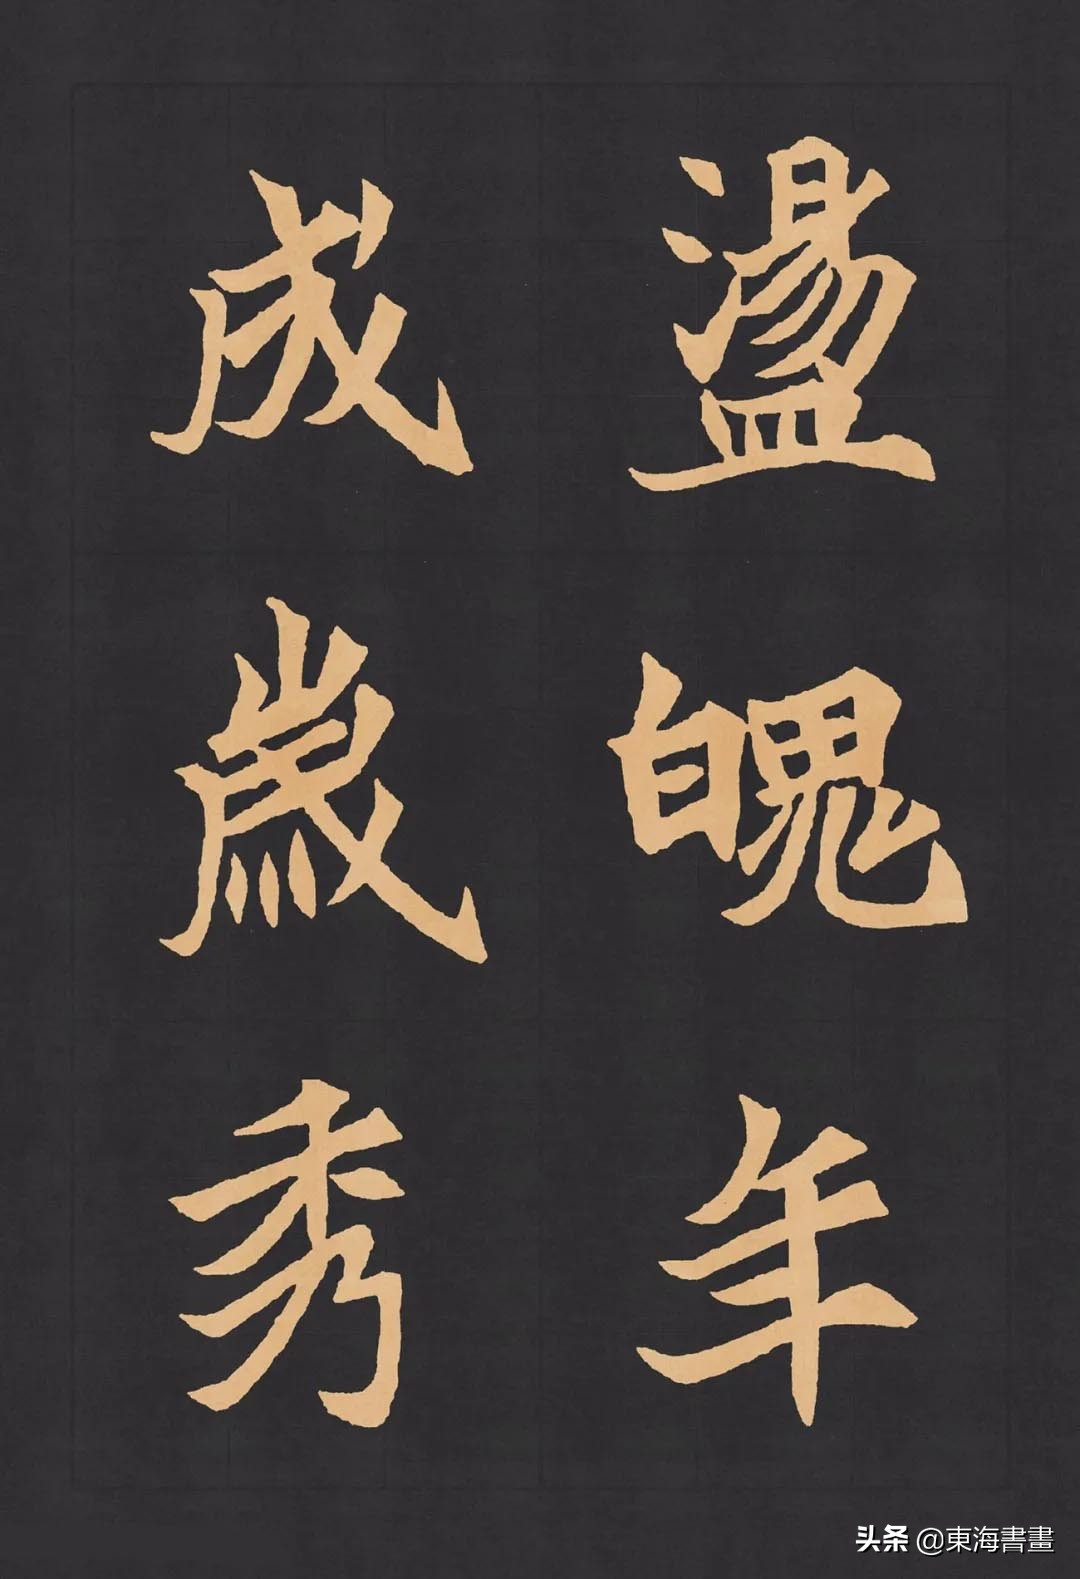 盪魄年
成歲秀
头条 @東海書畫